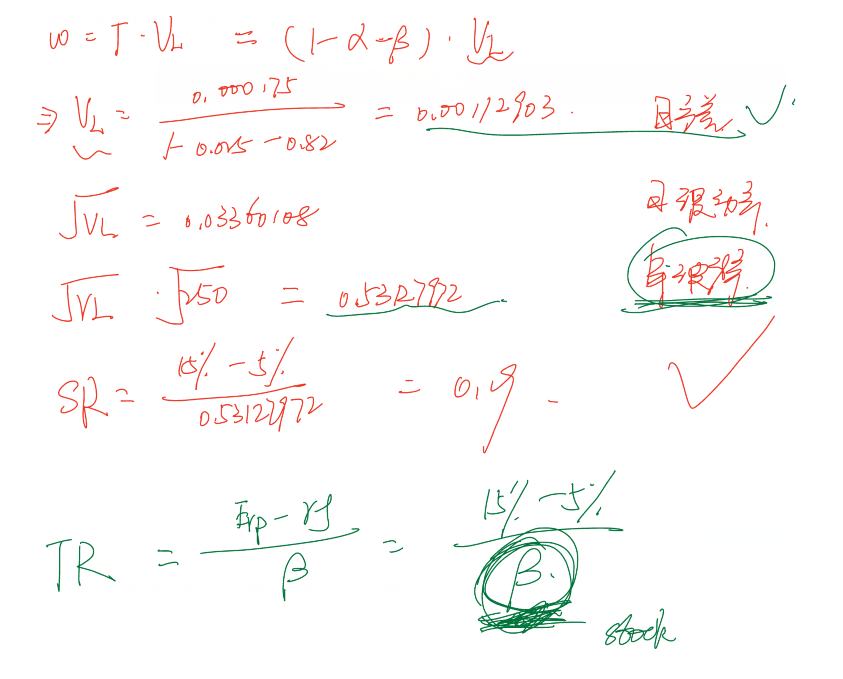 ω = γ · V_L = (1-α-β) · V_L
⇒ V_L = 0.000175 / 1-0.025-0.82 = 0.00112903. 日方差 ✓.
√V_L = 0.03360108 日波动率.
√V_L · √250 = 0.5312972 年波动率.
SR = 15% - 5% / 0.53127972 = 0.19 ✓
TR = Erp - rf / β = 15% - 5% / β.
stock